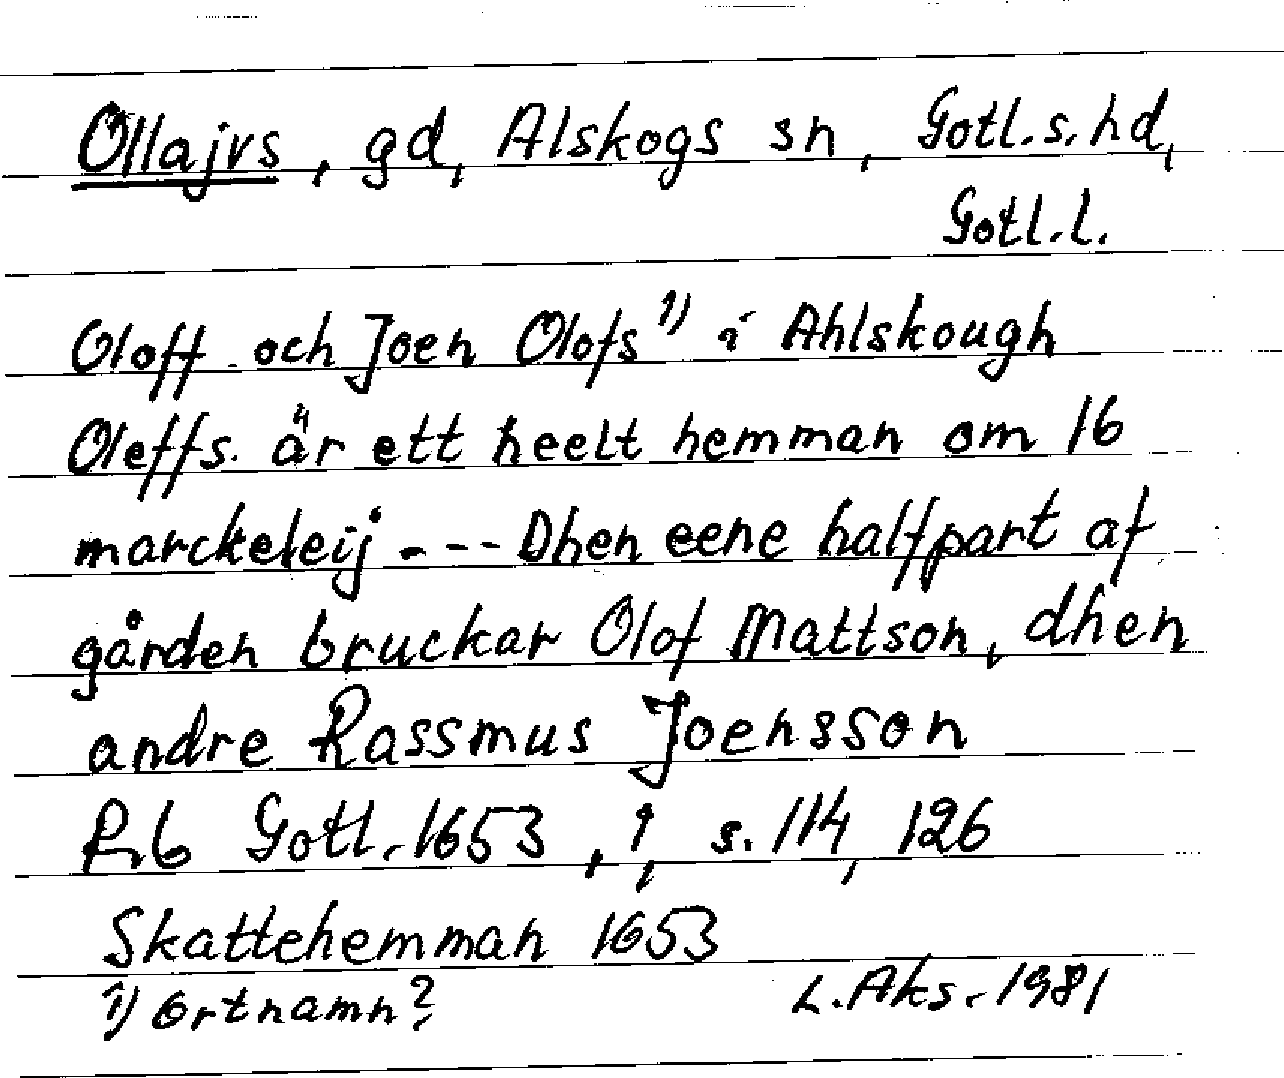 Ollajvs, gd, Alskogs sn, Gotl.s.hd,
Gotl.l.
Oloff och Joen Olofs 1) i Ahlskough
Oleffs. är ett heelt hemman om 16
marckeleij - - - - Dhen eene halfpart af
gården bruckar Olof Mattson, dhen
andre Rassmus Joensson
Rb Gotl. 1653, 1, s. 114, 126
Skattehemman 1653
1) Ortnamn? L. Aks. 1981